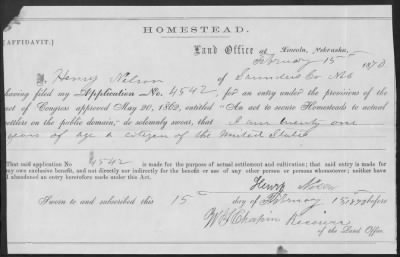 HOMESTEAD.
[AFFIDAVIT.]
Land Office at Lincoln, Nebraska,
February 15th 1870
I, Henry Nelson of Saunders Co Neb
having filed my Application No. 4542, for an entry under the provisions of the
act of Congress approved May 20, 1862, entitled "An act to secure Homesteads to actual
settlers on the public domain," do solemnly swear, that I am twenty one
years of age a citizen of the United States
That said application No 4542 is made for the purpose of actual settlement and cultivation; that said entry is made for
my own exclusive benefit, and not directly nor indirectly for the benefit or use of any other person or persons whomsoever; neither have
I abandoned an entry heretofore made under this Act.
Henry
Sworn to and subscribed this 15 day of February 15 before
Chapin Receiver
of the Land Office.